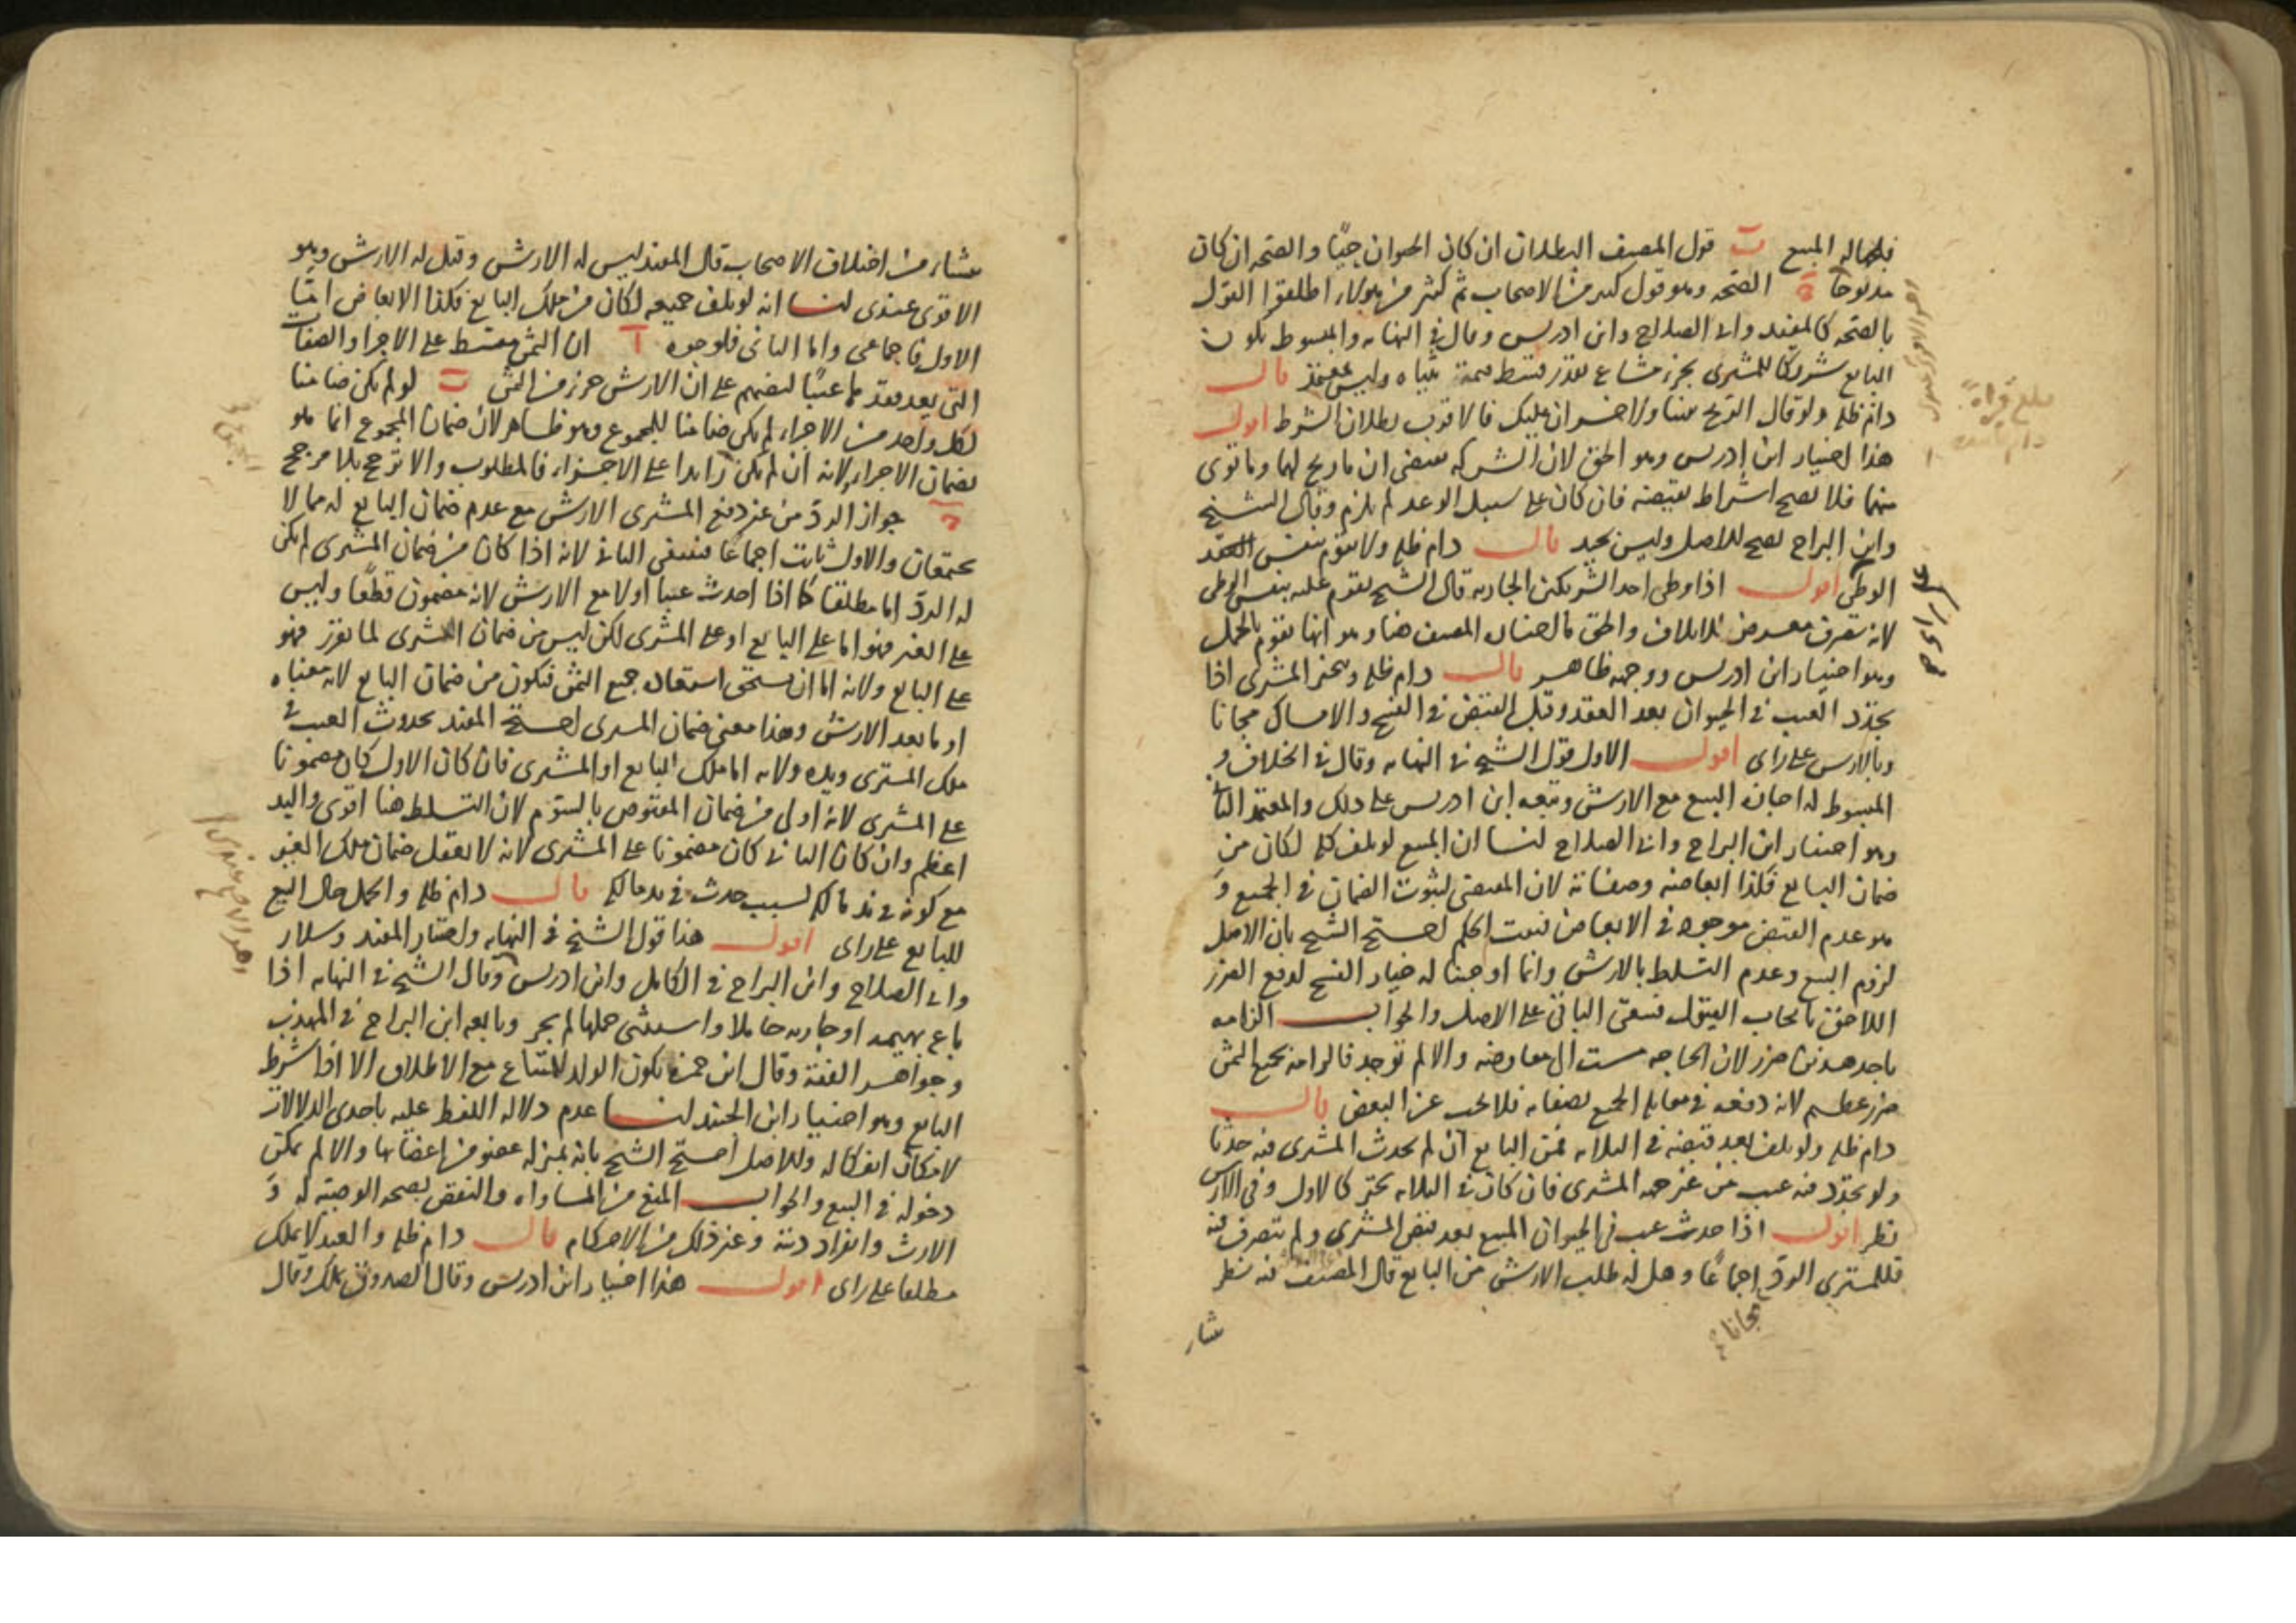 فلجهالة المبيع ب قول المصنف البطلان ان كان الحيوان حيًّا والصحة ان كان
مذبوحًا ج الصحة وهو قول كثير من الاصحاب ثم كثير من هؤلاء اطلقوا القول
بالصحة كالمفيد وابى الصلاح وابن ادريس وقال فى النهاية والمبسوط يكون
البايع شريكا للمشترى بجزء مشاع بقدر قسط قيمة ثنياه وليس بمعتمد قال
دام ظله ولو قال الربح بيننا ولا خسران عليك فالاقرب بطلان الشرط اقول
هذا اختيار ابن ادريس وهو الحق لان الشركة تقتضى ان ما ربح لهما وما توى
منهما فلا يصح اشتراط نقيضه فان كان على سبيل الوعد لم يلزم وقال الشيخ
وابن البراج يصح للاصل وليس بجيد قال دام ظله ولا تقوم بنفس
الوطى اقول اذا وطى احد الشريكين الجارية قال الشيخ تقوم عليه بنفس الوطى
لانه تصرف معرض للاتلاف والحق ما اختاره المصنف هنا وهو انها تقوم بالحمل
وهو اختيار ابن ادريس ووجهه ظاهر قال دام ظله ويتخير المشترى اذا
تجدد العيب فى الحيوان بعد العقد وقبل القبض فى الفسخ والامساك مجانا
وبالارش على راى اقول الاول قول الشيخ فى النهاية وقال فى الخلاف و
المبسوط له اجازة البيع مع الارش وتبعه ابن ادريس على ذلك والمعتمد الثانى
وهو اختيار ابن البراج وابى الصلاح لنا ان المبيع لو تلف كله لكان من
ضمان البايع فكذا ابعاضه وصفاته لان المقتضى لثبوت الضمان فى الجميع و
هو عدم القبض موجود فى الابعاض فثبت الحكم احتج الشيخ بان الاصل
لزوم البيع وعدم التسلط بالارش وانما اوجبنا له خيار الفسخ لدفع الضرر
اللاحق بايجاب القبول فيبقى الباقى على الاصل والجواب الزامه
باحد هذين ضرر لان الحاجة مست الى معاوضه والا لم توجد فالزامه بجميع الثمن
ضرر عظيم لانه دفعه فى مقابلة الجميع بصفاته فلا يجب عن البعض قال
دام ظله ولو تلف بعد قبضه فى الثلاثة فمن البايع ان لم يحدث المشترى فيه حدثا
ولو تجدد فيه عيب من غير جهة المشترى فان كان فى الثلاثة تخير كالاول وفى الارش
نظر اقول اذا حدث عيب فى الحيوان المبيع بعد قبض المشترى ولم يتصرف فيه
فللمشترى الرد اجماعًا وهل له طلب الارش من البايع قال المصنف فيه نظر
مجانا
بلغ قراءة
ينشاء من اختلاف الاصحاب قال المفيد ليس له الارش وقيل له الارش وهو
الاقوى عندى لنا انه لو تلف جميعه لكان من ملك البايع فكذا الابعاض اما
الاول فاجماعى واما الثانى فلوجوه ا ان الثمن مقسط على الاجزاء والصفات
التى يعد فقدها عيبًا لنصهم على ان الارش جزء من الثمن ب لو لم يكن ضامنا
لكل واحد من الاجزاء لم يكن ضامنا للمجموع وهو ظاهر لان ضمان المجموع انما هو
بضمان الاجزاء لانه ان لم يكن زايدا على الاجزاء فالمطلوب والا ترجح بلا مرجح
ج جواز الرد من غير دفع المشترى الارش مع عدم ضمان البايع له مما لا
يجتمعان والاول ثابت اجماعًا فينتفى الثانى لانه اذا كان من ضمان المشترى لم يكن
له الرد اما مطلقا كما اذا احدث عيبا او لا مع الارش لانه مضمون قطعًا وليس
على الغير فهو اما على البايع او على المشترى لكن ليس من ضمان المشترى لما تقرر فهو
على البايع ولانه اما ان يستحق استعادة جميع الثمن فيكون من ضمان البايع لانه معناه
او ما بعد الارش وهذا معنى ضمان المشترى احتج المفيد بحدوث العيب فى
ملك المشترى ويده ولانه اما ملك البايع او المشترى فان كان الاول كان مضمونا
على المشترى لانه اولى من ضمان المقبوض بالسوم لان التسلط هنا اقوى واليد
اعظم وان كان الثانى كان مضمونا على المشترى لانه لا يعقل ضمان ملك الغير
مع كونه فى يد مالكه لسبب حدث فى يد مالكه قال دام ظله والحمل حال البيع
للبايع على راى اقول هذا قول الشيخ فى النهاية واختاره المفيد وسلار
وابى الصلاح وابن البراج فى الكامل وابن ادريس وقال الشيخ فى النهاية اذا
باع بهيمه او جارية حاملا واستثنى حملها لم يجز وتابعه ابن البراج فى المهذب
وجواهر الفقه وقال ابن حمزة يكون الولد للمبتاع مع الاطلاق الا اذا شرط
البايع وهو اختيار ابن الجنيد لنا عدم دلالة اللفظ عليه باحدى الدلالات
لامكان انفكاكه وللاصل احتج الشيخ بانه بمنزلة عضو من اعضائها والا لم يمكن
دخوله فى البيع والجواب المنع من المساواة والنقض بصحة الوصية له و
الارث وانفراد ديته وغير ذلك من الاحكام قال دام ظله والعبد لا يملك
مطلقا على راى اقول هذا اختيار ابن ادريس وقال الصدوق يملك وقال